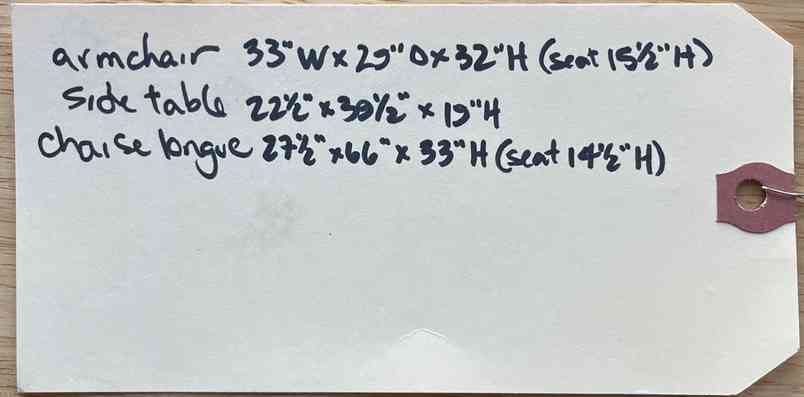 armchair 33"W x 29"D x 32"H (seat 15½"H)
side table 22½" x 30½" x 19"H
chaise longue 27½" x 66" x 33"H (seat 14½"H)